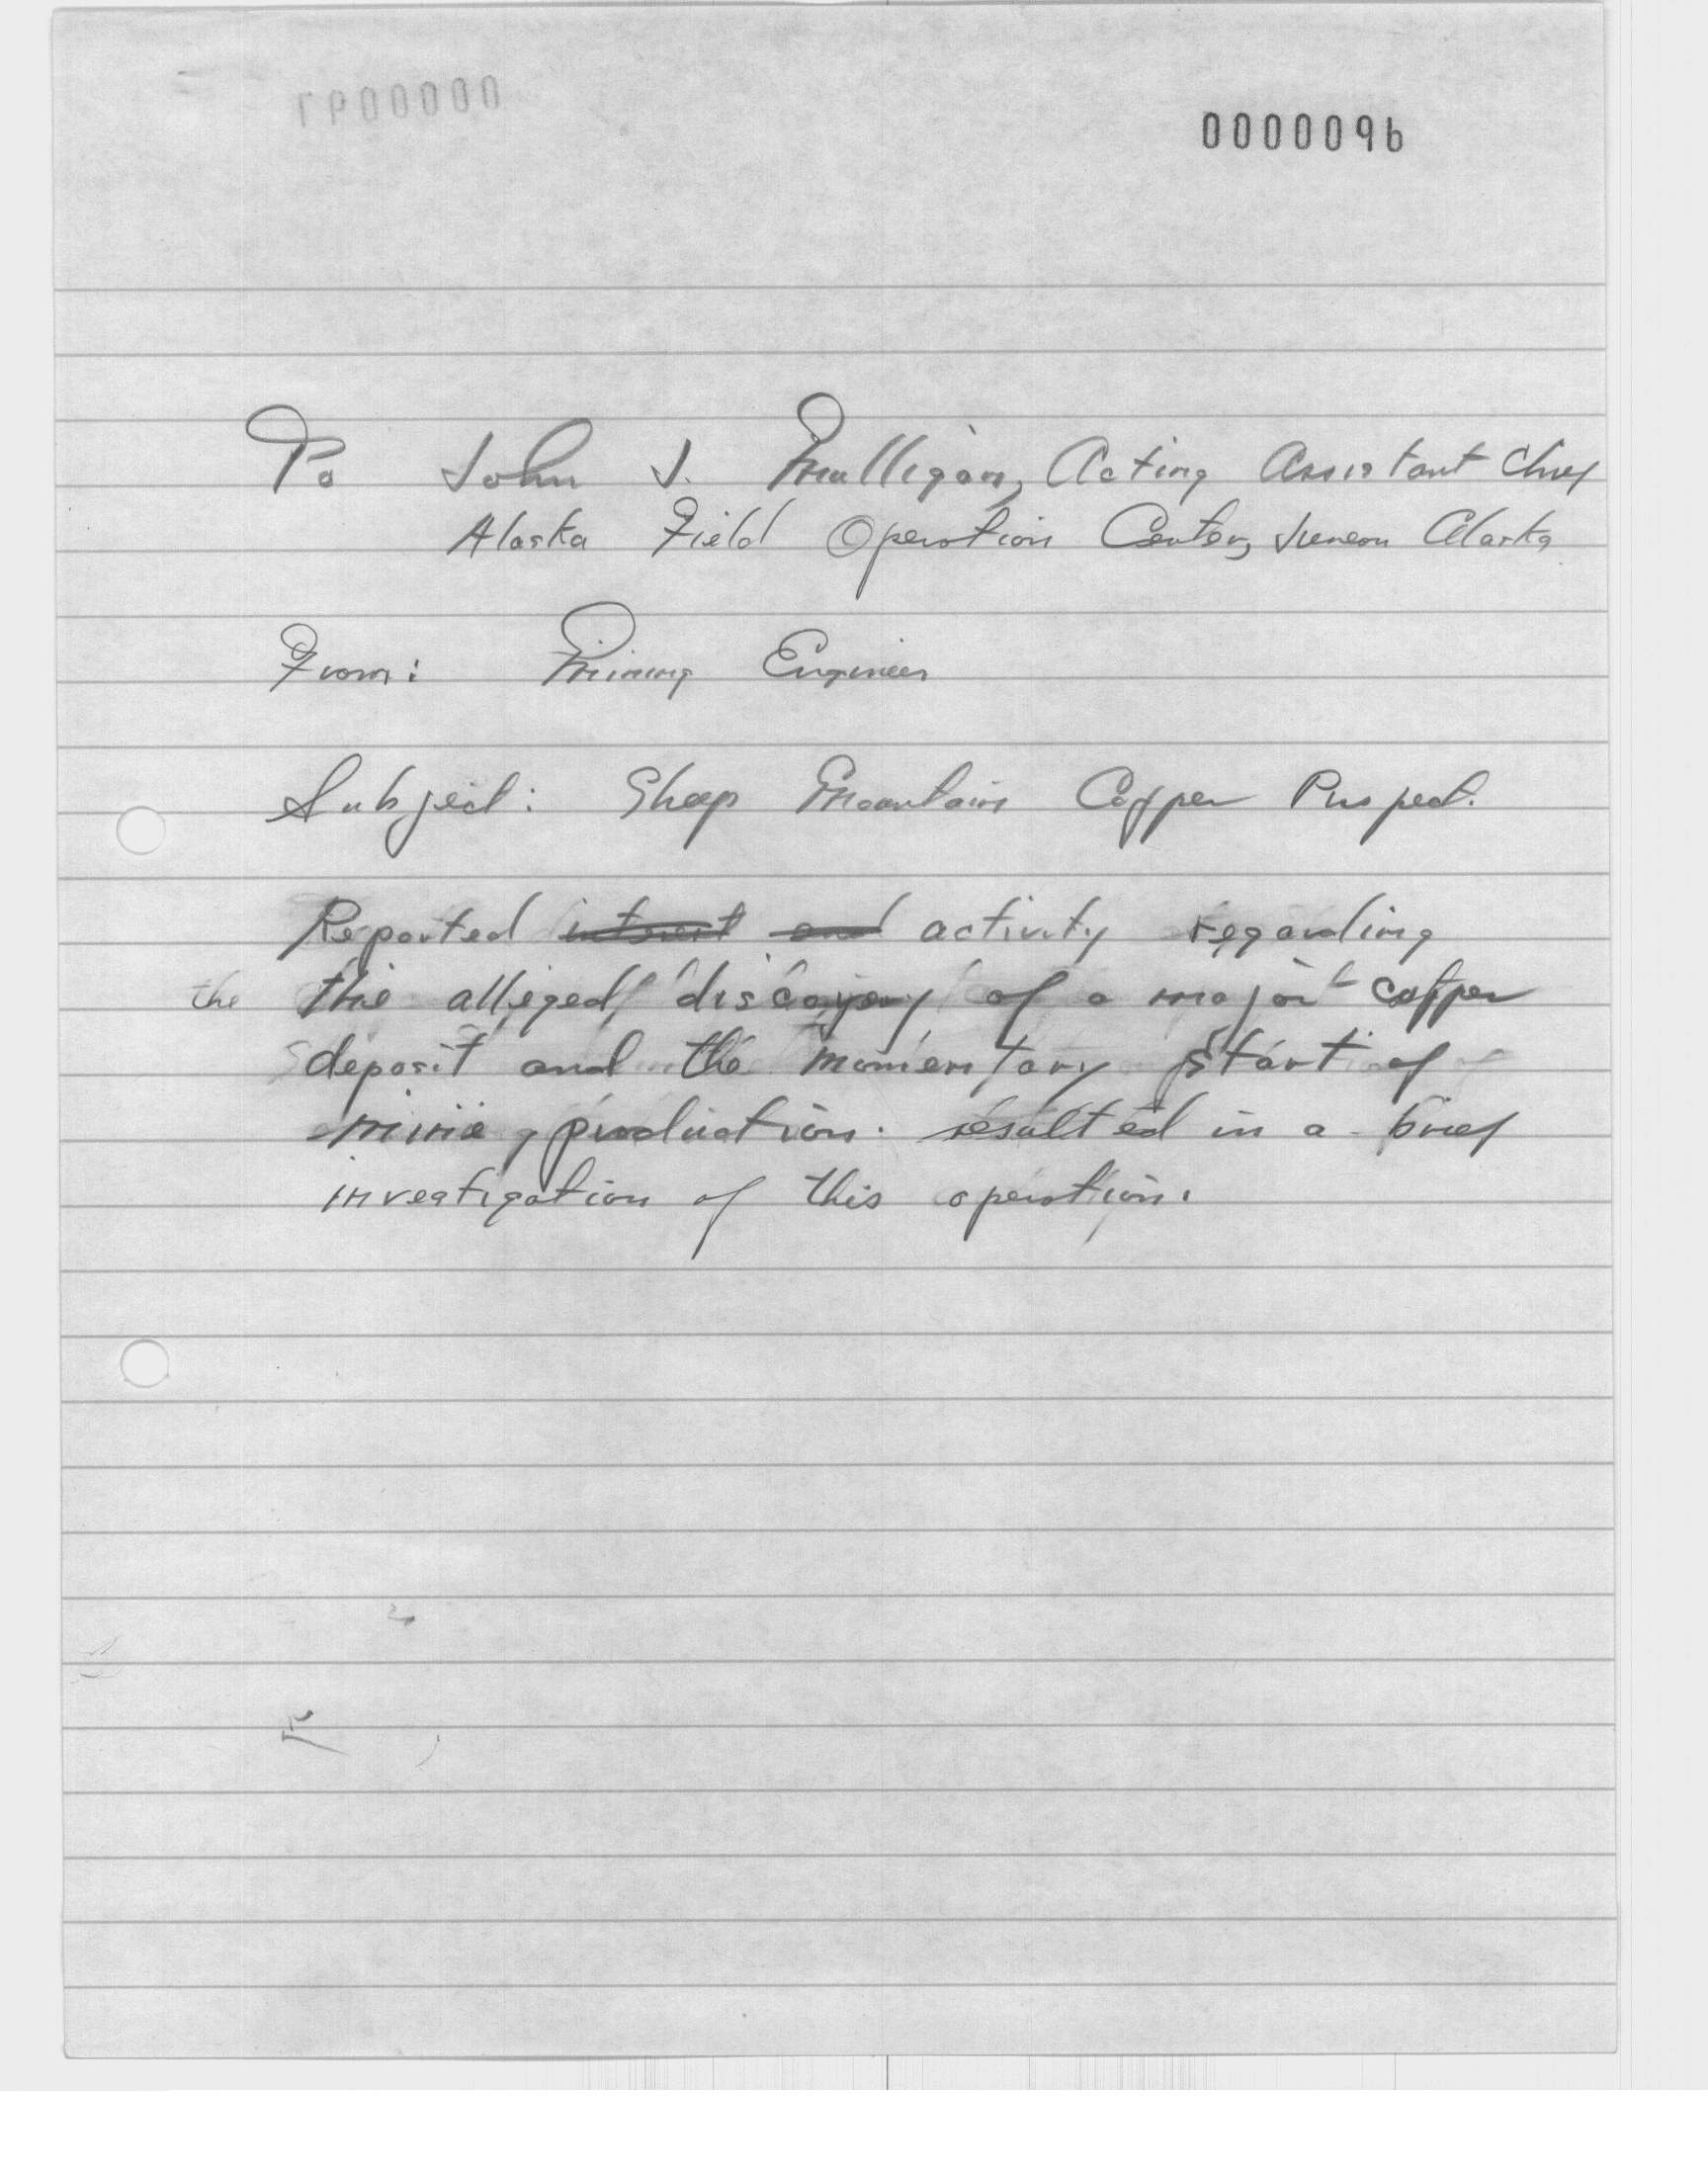 0000096
To John J. Mulligan, Acting Assistant Chief
Alaska Field Operation Center, Juneau Alaska
From: Mining Engineer
Subject: Sheep Mountain Copper Prospect.
Reported interest and activity regarding
the the alleged discovery of a major copper
deposit and the momentary start of
mine production resulted in a brief
investigation of this operation.